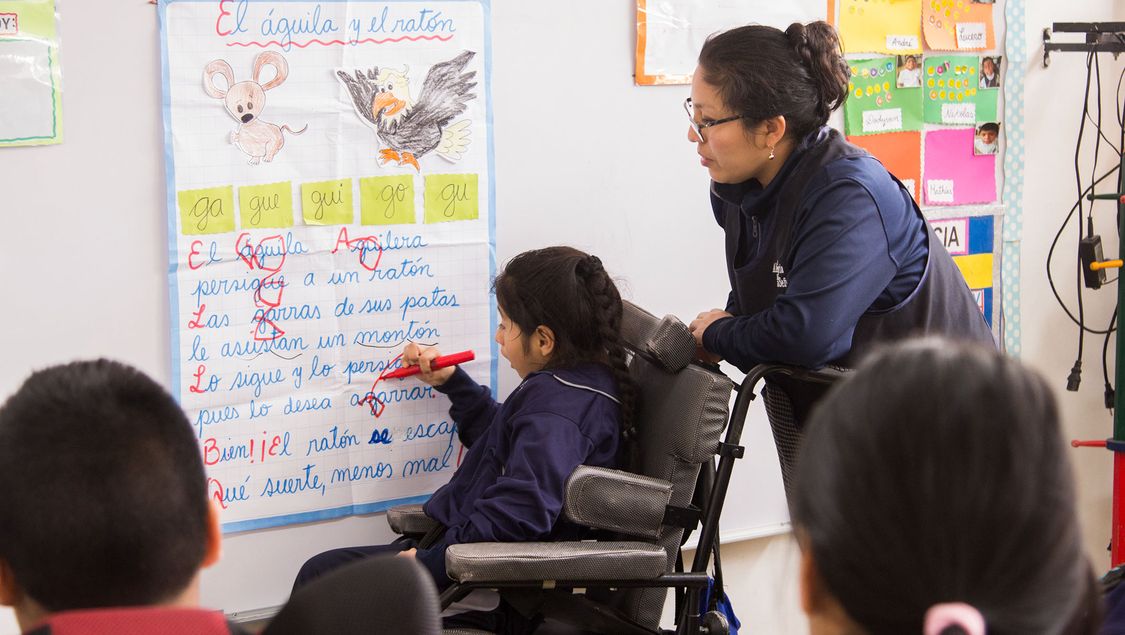 OY:
El águila y el ratón
ga gue gui go gu
El águila Aguilera
persigue a un ratón
Las garras de sus patas
le asustan un montón
Lo sigue y lo persi
pues lo desea agarrar
Bien! ¡El ratón se escap
Qué suerte, menos mal!
André
Lucero
Nicolas
Mathías
CIA